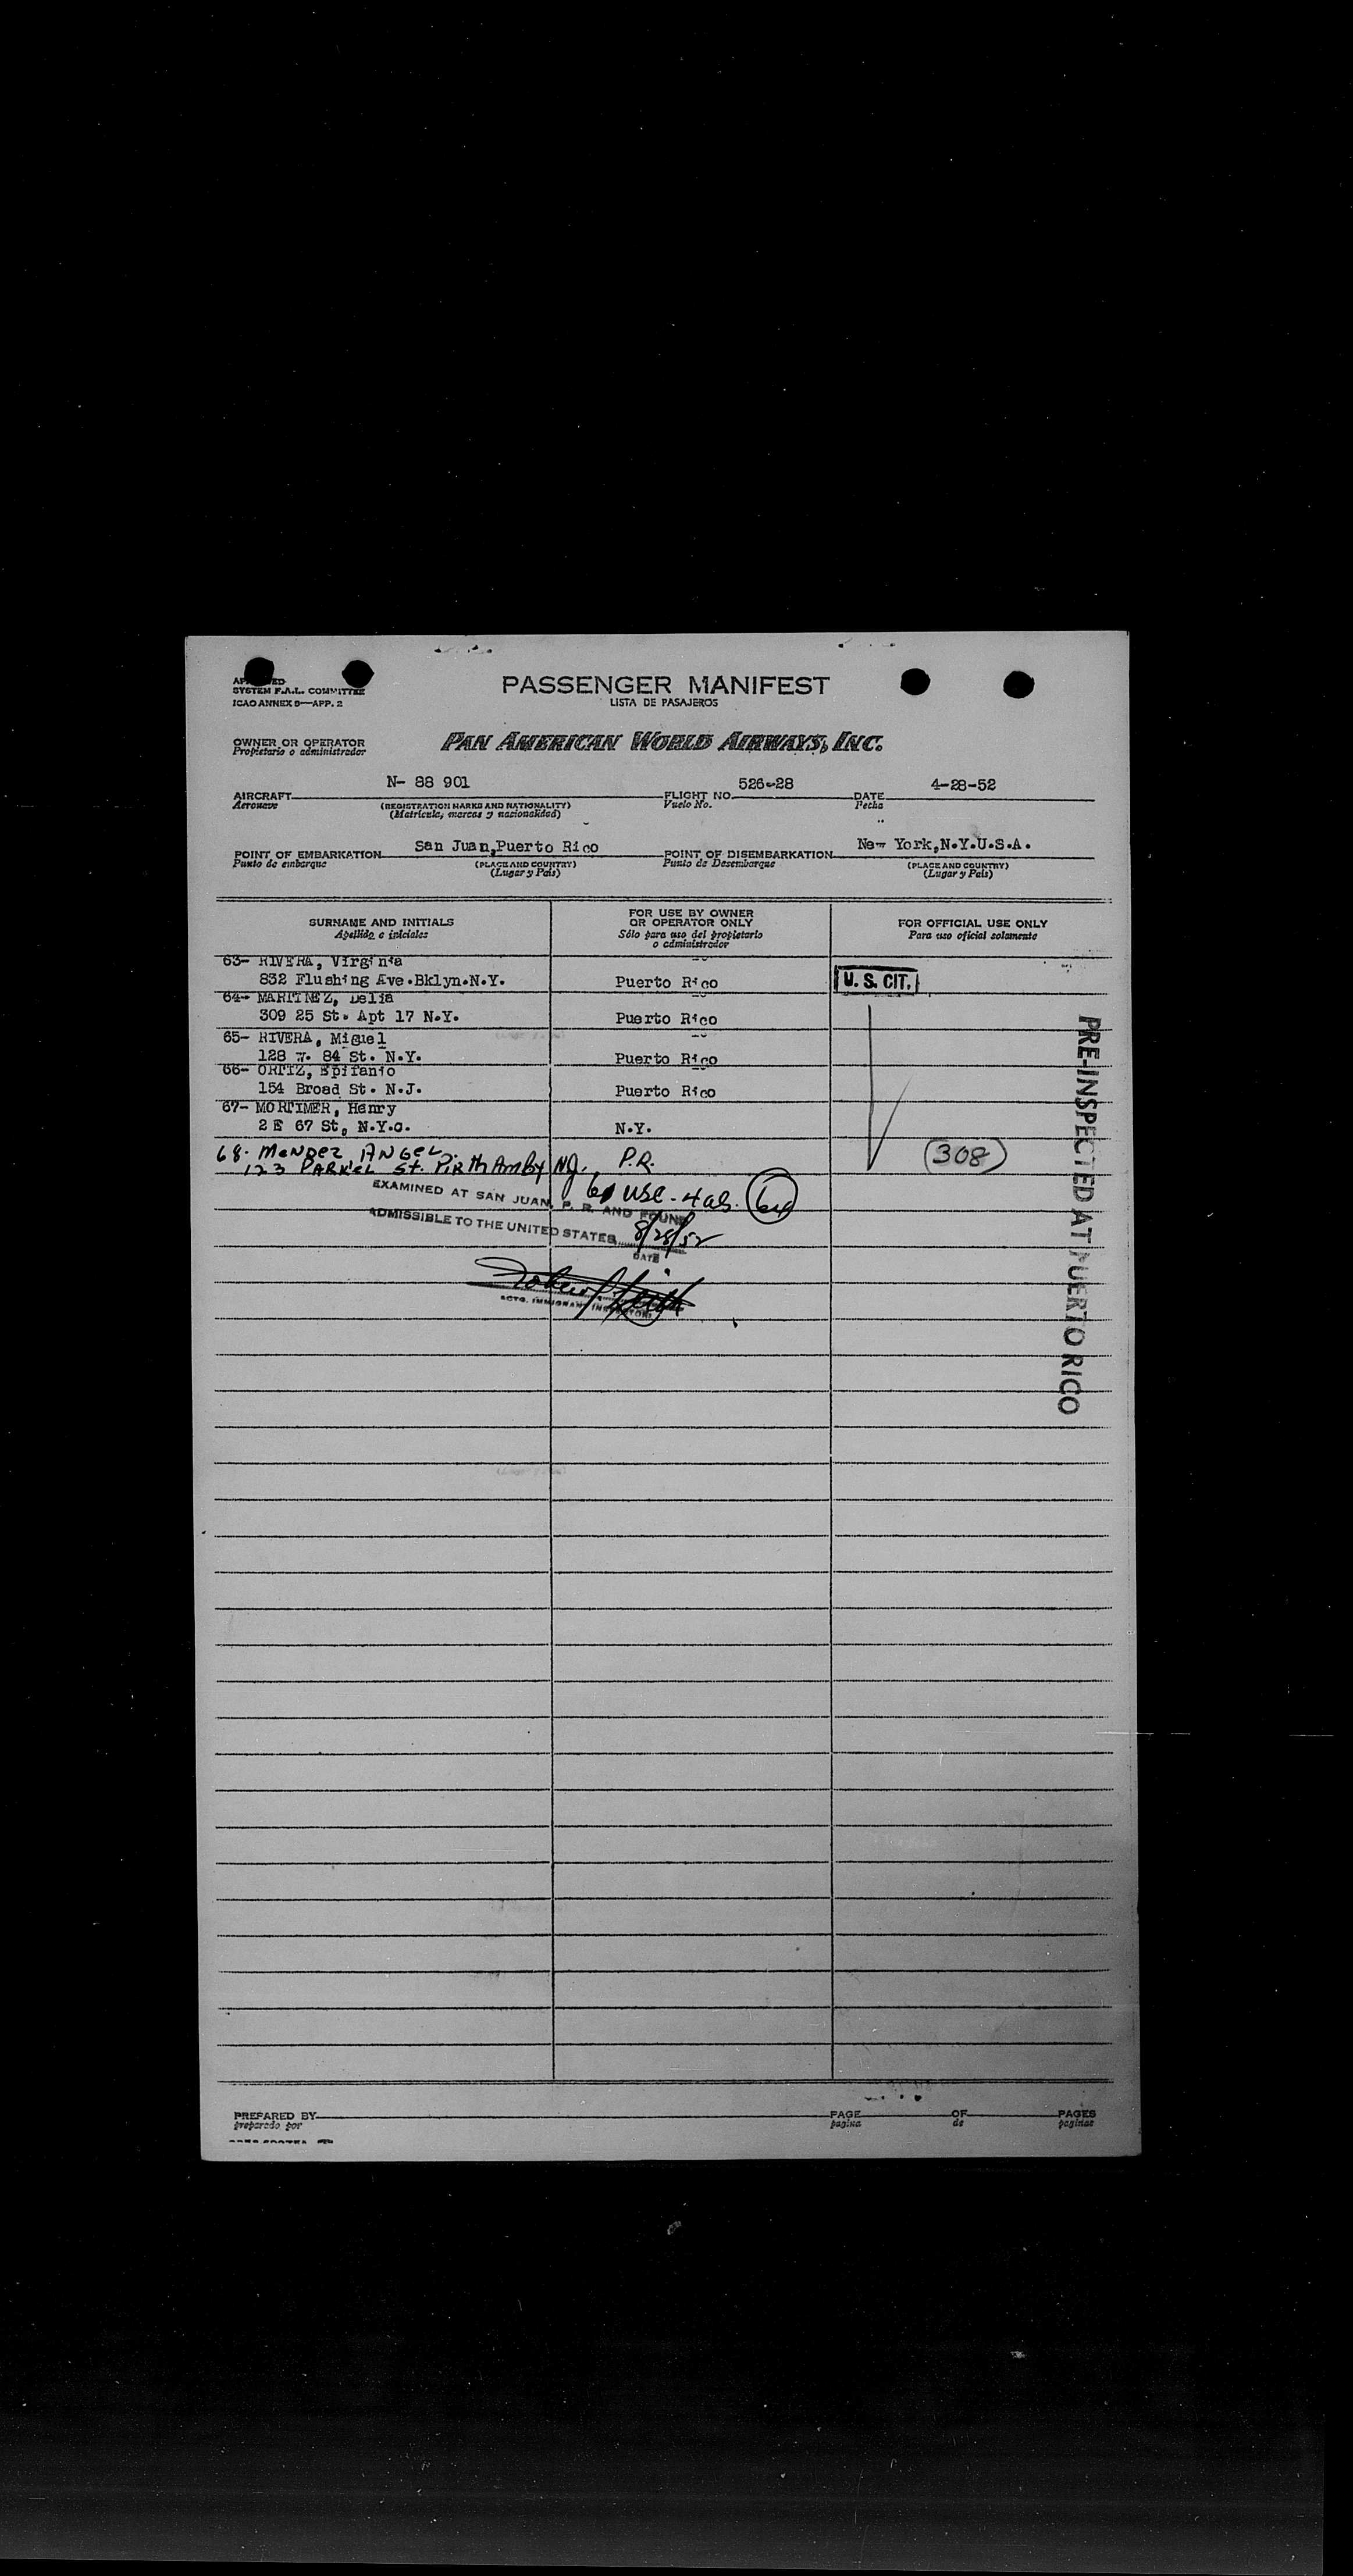 PASSENGER MANIFEST
LISTA DE PASAJEROS
SYSTEM F.A.L. COMMITTEE
ICAO ANNEX 9—APP. 2
OWNER OR OPERATOR
Propietario o administrador
PAN AMERICAN WORLD AIRWAYS, INC.
AIRCRAFT N- 88 901 FLIGHT NO. 526-28 DATE 4-28-52
Aeronave (REGISTRATION MARKS AND NATIONALITY) Vuelo No. Fecha
(Matricula, marcas y nacionalidad)
POINT OF EMBARKATION San Juan,Puerto Rico POINT OF DISEMBARKATION New York,N.Y.U.S.A.
Punto de embarque (PLACE AND COUNTRY) Punto de Desembarque (PLACE AND COUNTRY)
(Lugar y País) (Lugar y País)
SURNAME AND INITIALS FOR USE BY OWNER OR OPERATOR ONLY FOR OFFICIAL USE ONLY
Apellido e iniciales Sólo para uso del propietario o administrador Para uso oficial solamente
63- RIVERA, Virginia
832 Flushing Ave.Bklyn.N.Y. Puerto Rico U. S. CIT.
64- MARTINEZ, Delia
309 25 St. Apt 17 N.Y. Puerto Rico
65- RIVERA, Miguel
128 W. 84 St. N.Y. Puerto Rico
66- ORTIZ, Epifanio
154 Broad St. N.J. Puerto Rico
67- MORTIMER, Henry
2 E 67 St, N.Y.C. N.Y.
68. MENDEZ ANGEL. P.R. (308)
123 PARKER St. PIRTH Amby NJ.
EXAMINED AT SAN JUAN, P. R. AND FOUND
USC - 4 as. 64
ADMISSIBLE TO THE UNITED STATES 8/28/52
DATE
ACTG. IMMIGRANT INSPECTOR
PRE-INSPECTED AT PUERTO RICO
PREPARED BY PAGE OF PAGES
preparado por pagina de paginas